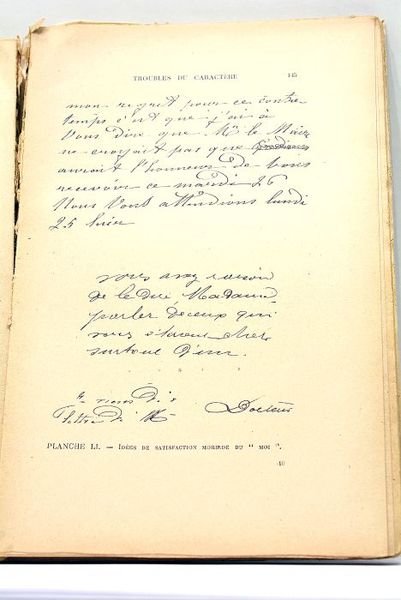 TROUBLES DU CARACTÈRE 145
mon regret pour ce contre
temps c'est que j'ai à
Vous dire que Mr le Maire
ne croyait pas que
auroit l'honneur de vous
recevoir ce mardi 26
Nous Vous attendions lundi
25 hier
vous avez raison
de le dire, Madame,
parler de ceux qui
vous étaient chers
surtout d'un
Docteur
PLANCHE LI. — IDÉES DE SATISFACTION MORBIDE DU " MOI ".
10